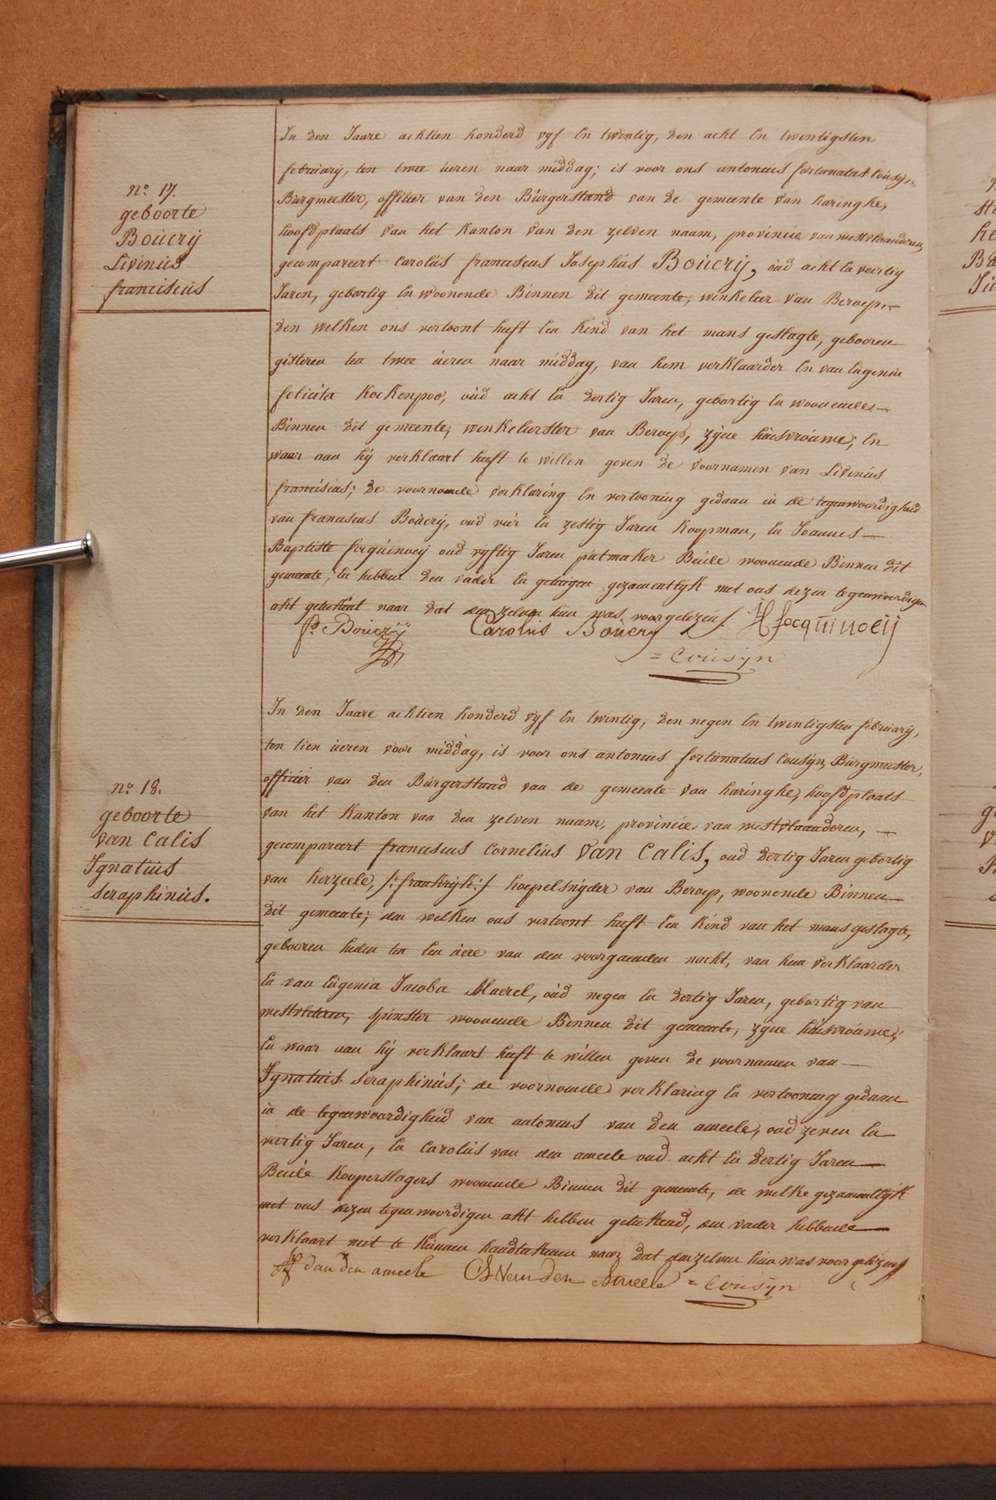 n.º 17.
geboorte
Boúcrÿ
Livinús
franciscús
In den Jaare achtien honderd vyf En twintig, den acht En twintigsten
februarij, ten twee úeren naar middag; is voor ons antonius fortunatus Cousyn,
Búrgmeester, officier van den Búrgerstand van de gemeente van haringhe,
hoofdplaats van het Kanton van den zelven naam, provincie van westvlaanderen,
gecompareert Carolús franciscus Josephús Boúcrÿ, oúd acht En veertig
Jaren, gebortig En woonende Binnen dit gemeente, winkelier van Beroep,
den welken ons vertoont heeft Een Kind van het mans geslagte, gebooren
gisteren ten twee úeren naar middag, van hem verklaarder En van Eugenia
felicita Kockenpoo, oúd acht En dertig Jaren, gebortig En woonende
Binnen dit gemeente, winkelierster van Beroep, zÿne húisvroúwe; En
waar aan hÿ verklaart heeft te willen geven de voornamen van Livinús
franciscús; de voornoemde verklaring En vertooning gedaan in de tegenwoordigheid
van franciscus Boúcrÿ, oud vier En zestig Jaren Koopman, En Joannes
Baptiste forqúinoeÿ oud vyftig Jaren patmaker Beide woonende Binnen dit
gemeente, En hebben den vader En getuigen gezamentlyk met ons dezen tegenwoordigen
akt getekent naar dat den zelven hun was voorgelezen
Carolús Boúcrÿ
= Coúsÿn
In den Jaare achtien honderd vyf En twintig, den negen En twintigsten februarij,
ten tien úeren voor middag, is voor ons antonius fortunatus Cousÿn, Búrgmeester,
officier van den Búrgerstand van de gemeente van haringhe, hoofdplaats
van het Kanton van den zelven naam, provincie van westvlaanderen,
gecompareert franciscus Cornelius Van Calis, oud dertig Jaren gebortig
van herzeele, /:frankrÿk:/ hoepelsnÿder van Beroep, woonende Binnen
dit gemeente; den welken ons vertoont heeft Een Kind van het mans geslagte,
gebooren heden ten Een úere van den voorgaenden nacht, van hem verklaarder
En van Eúgenia Jacoba Maerel, oúd negen En dertig Jaren, gebortig van
westvleteren, spinster woonende Binnen dit gemeente, zÿne húisvroúwe;
En waar aan hÿ verklaart heeft te willen geven de voornamen van
Ignatiús seraphinús; de voornoemde verklaring En vertooning gedaan
in de tegenwoordigheid van antonius van den ameele, oud zeven En
veertig Jaren, En Carolús van den ameele oud acht En dertig Jaren
Beide Koperslagers woonende Binnen dit gemeente, de welke gezamentlÿk
met ons dezen tegenwoordigen akt hebben getekend, den vader hebbende
verklaart niet te Kúnnen handtekenen naar dat denzelven hun was voorgelezen
van den ameele
Van Den Ameele
= Coúsÿn
n.º 18.
geboorte
van Calis
Ignatiús
seraphinús.